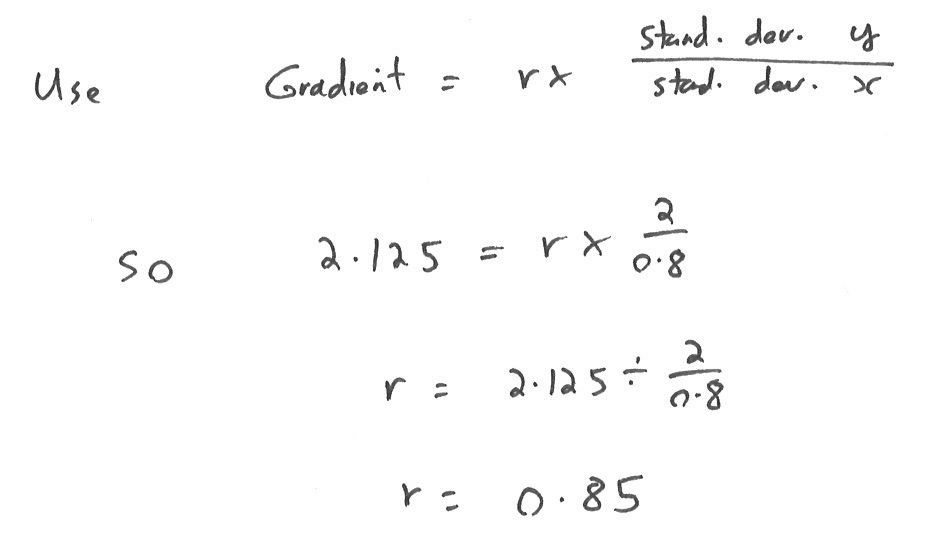 Use Gradient = r × stand. dev. y / stad. dev. x
so 2.125 = r × 2/0.8
r = 2.125 ÷ 2/0.8
r = 0.85